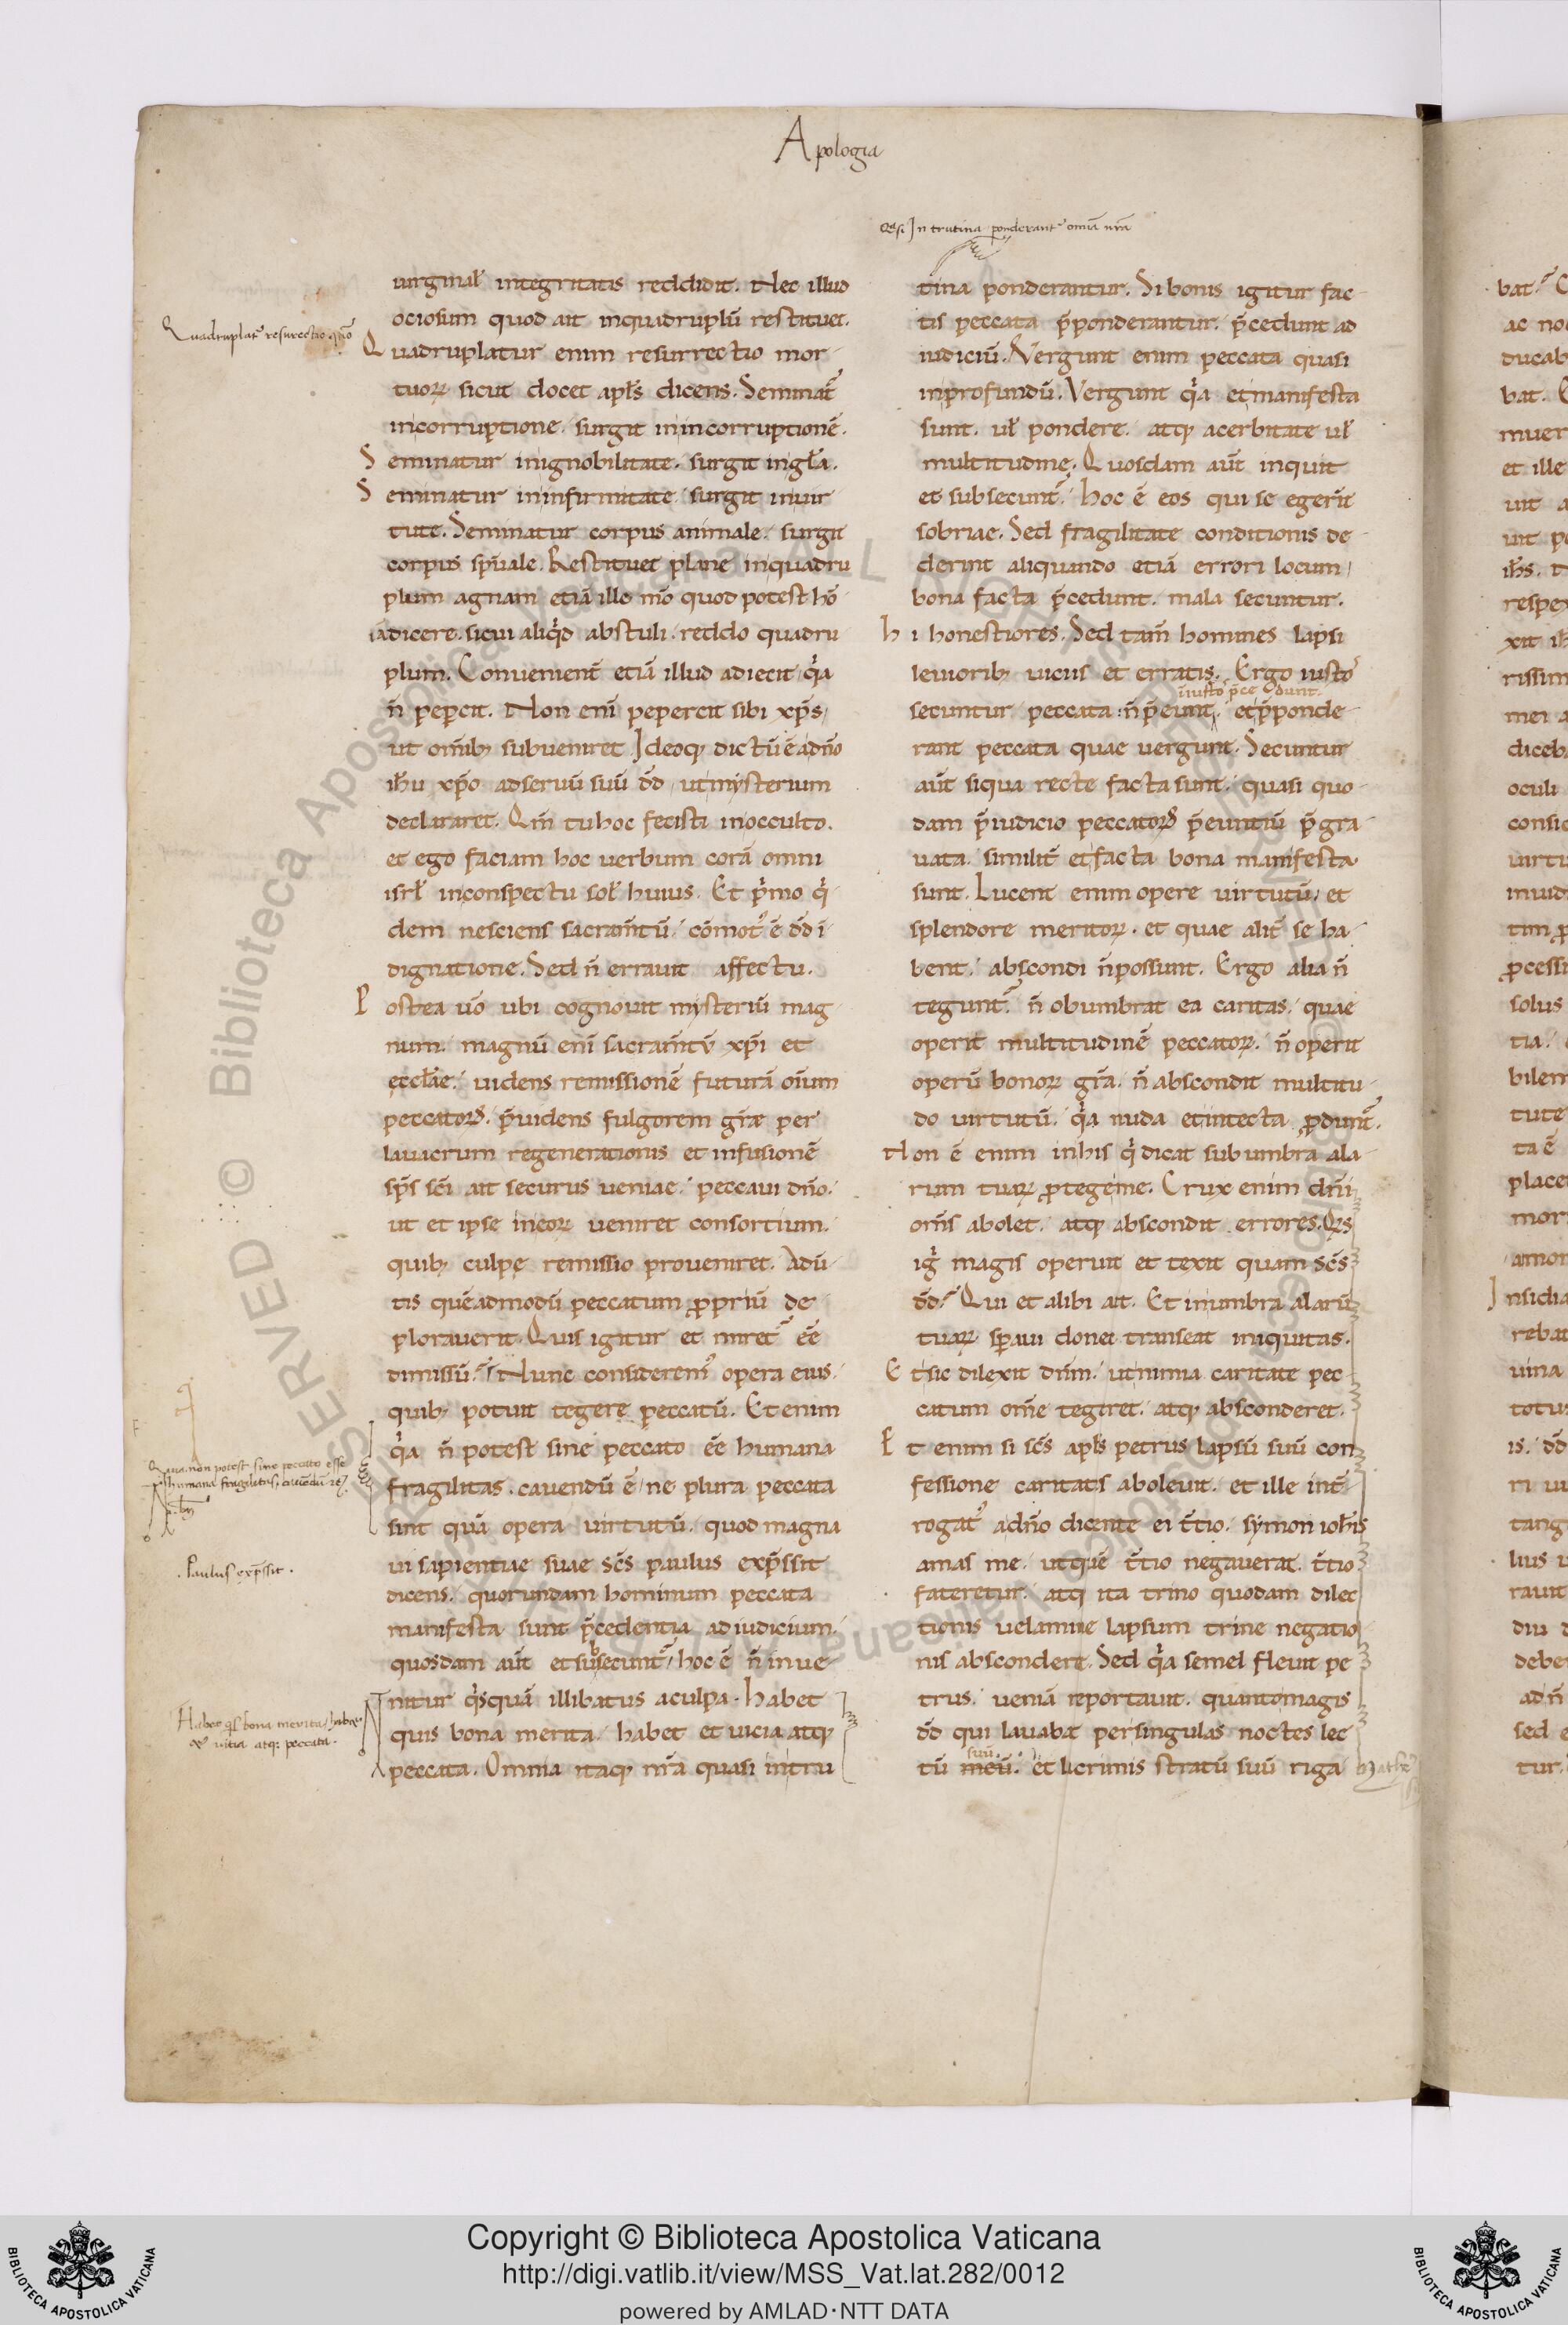 Apologia
Qasi In trutina ponderant᷑ omia nr̄a
uirginal̄ integritatis reddidit. Nec illud
ociosum quod ait inquadruplū restituet.
Quadruplat᷑ resurectio q̄mō
Quadruplatur enim resurrectio mor
tuoꝝ sicut docet apl̄s dicens. Seminat᷑
incorruptione. surgit inincorruptionē.
Seminatur inignobilitate. surgit ingl̄a.
Seminatur ininfirmitate surgit inuir
tute. Seminatur corpus animale. surgit
corpus sp̄uale. Restituet plane inquadru
plum agnam etiā ille m̄o quod potest hō
iādicere. sicui aliq̇d abstuli. reddo quadru
plum. Conuenient̄ etiā illud adiecit q̇a
n̄ pepcit. Non eni pepercit sibi xp̄s
ut om̄ibꝫ subueniret Ideoqꝫ dictū ē adn̄o
ih̄u xp̄o adseruū suū dd̄ utmysterium
declararet. Qm̄ tuhoc fecisti inocculto.
et ego faciam hoc uerbum corā omni
isrl̄ inconspectu sol̄ huius. Et ṗmo q̇
dem nesciens sacram̄tū. cōmot᷒ ē dd̄ ī
dignatione. Sed n̄ errauit affectu.
Postea ūo ubi cognouit mysteriū mag
num. magnū eni sacram̄tū xp̄i et
eccl̄ae. uidens remissionē futurā oīum
peccatoꝝ. p̄uidens fulgorem gr̄æ per
lauacrum regenerationis et infusionē
sp̄s sc̄i ait securus ueniae. peccaui dn̄o.
ut et ipse ineoꝝ ueniret consortium.
quibꝫ culpę remissio proueniret. Adū
tis quēadmodū peccatum ꝓpriū de
plorauerit. Quis igitur et miret᷑ eē
dimissū? Nunc considerem᷒ opera eius.
quibꝫ potuit tegere peccatū. Et enim
q̇a n̄ potest sine peccato eē humana
Quia non potest sine peccato esse
humana fragilitas, cauēdū
fragilitas. cauendū ē ne plura peccata
sint quā opera uirtutū. quod magna
ui sapientiae suae sc̄s paulus exp̄ssit
.Paulus exp̄ssit.
dicens. quorundam hominum peccata
manifesta sunt p̄cedentia adiudicium.
quosdam aūt etsubsecunt᷑. hoc ē n̄ inue
nitur q̇squā illibatus aculpa. Habet
Habet q̇s bona merita, habet
et uitia atqꝫ peccata.
quis bona merita. habet et uicia atqꝫ
peccata. Omnia itaqꝫ nr̄a quasi intru
tina ponderantur. Si bonis igitur fac
tis peccata p̄ponderantur. p̄cedunt ad
iudiciū. Vergunt enim peccata quasi
inprofundū. Vergunt q̇a etmanifesta
sunt. ul̄ pondere. atqꝫ acerbitate ul̄
multitudine. Quosdam aūt inquit
et subsecunt᷑. hoc ē eos qui se egerīt
sobriae. Sed fragilitate conditionis de
derint aliquando etiā errori locum
bona facta p̄cedunt. mala secuntur.
Hi honestiores. Sed tam̄ homines lapsi
leuioribꝫ uiciis et erratis. Ergo iusto
īiusto p̄cedunt.
secuntur peccata n̄ p̄eunt. etp̄ponde
rant peccata quae uergunt. Secuntur
aūt siqua recte facta sunt. quasi quo
dam p̄iudicio peccatoꝝ p̄euntiū p̄gra
uata. similit᷑ etfacta bona manifesta
sunt. Lucent enim opere uirtutū, et
splendore meritoꝝ. et quae alit᷑ se ha
bent. abscondi n̄possunt. Ergo alia n̄
tegunt᷑. n̄ obumbrat ea caritas. quae
operit multitudinē peccatoꝝ. n̄ operit
operū bonoꝝ gr̄a. n̄ abscondit multitu
do uirtutū. q̇a nuda etintecta ꝓdunt᷑.
Non ē enim inhis q̇ dicat subumbra ala
rum tuaꝝ ꝓtegeme. Crux enim dn̄i
om̄s abolet. atqꝫ abscondit errores. Qis
iġ magis operuit et texit quam sc̄s
dd̄? Qui et alibi ait. Et inumbra alarū
tuaꝝ speraui donec transeat iniquitas.
Etsic dilexit dn̄m. utnimia caritate pec
catum om̄e tegeret. atqꝫ absconderet.
Et enim si sc̄s apl̄s petrus lapsū suū con
fessione caritatis aboleuit. et ille int̄
rogat᷒ adn̄o dicente ei t̄tio. symon ioh̄is
amas me. utquē t̄tio negauerat. t̄tio
fateretur. atqꝫ ita trino quodam dilec
tionis uelamine lapsum trine negatio
nis absconderet. Sed q̇a semel fleuit pe
trus. ueniā reportauit. quantomagis
dd̄ qui lauabat persingulas noctes lec
suū
tū meū. et lacrimis stratū suū riga
Copyright © Biblioteca Apostolica Vaticana
http://digi.vatlib.it/view/MSS_Vat.lat.282/0012
powered by AMLAD·NTT DATA
BIBLIOTECA APOSTOLICA VATICANA
BIBLIOTECA APOSTOLICA VATICANA